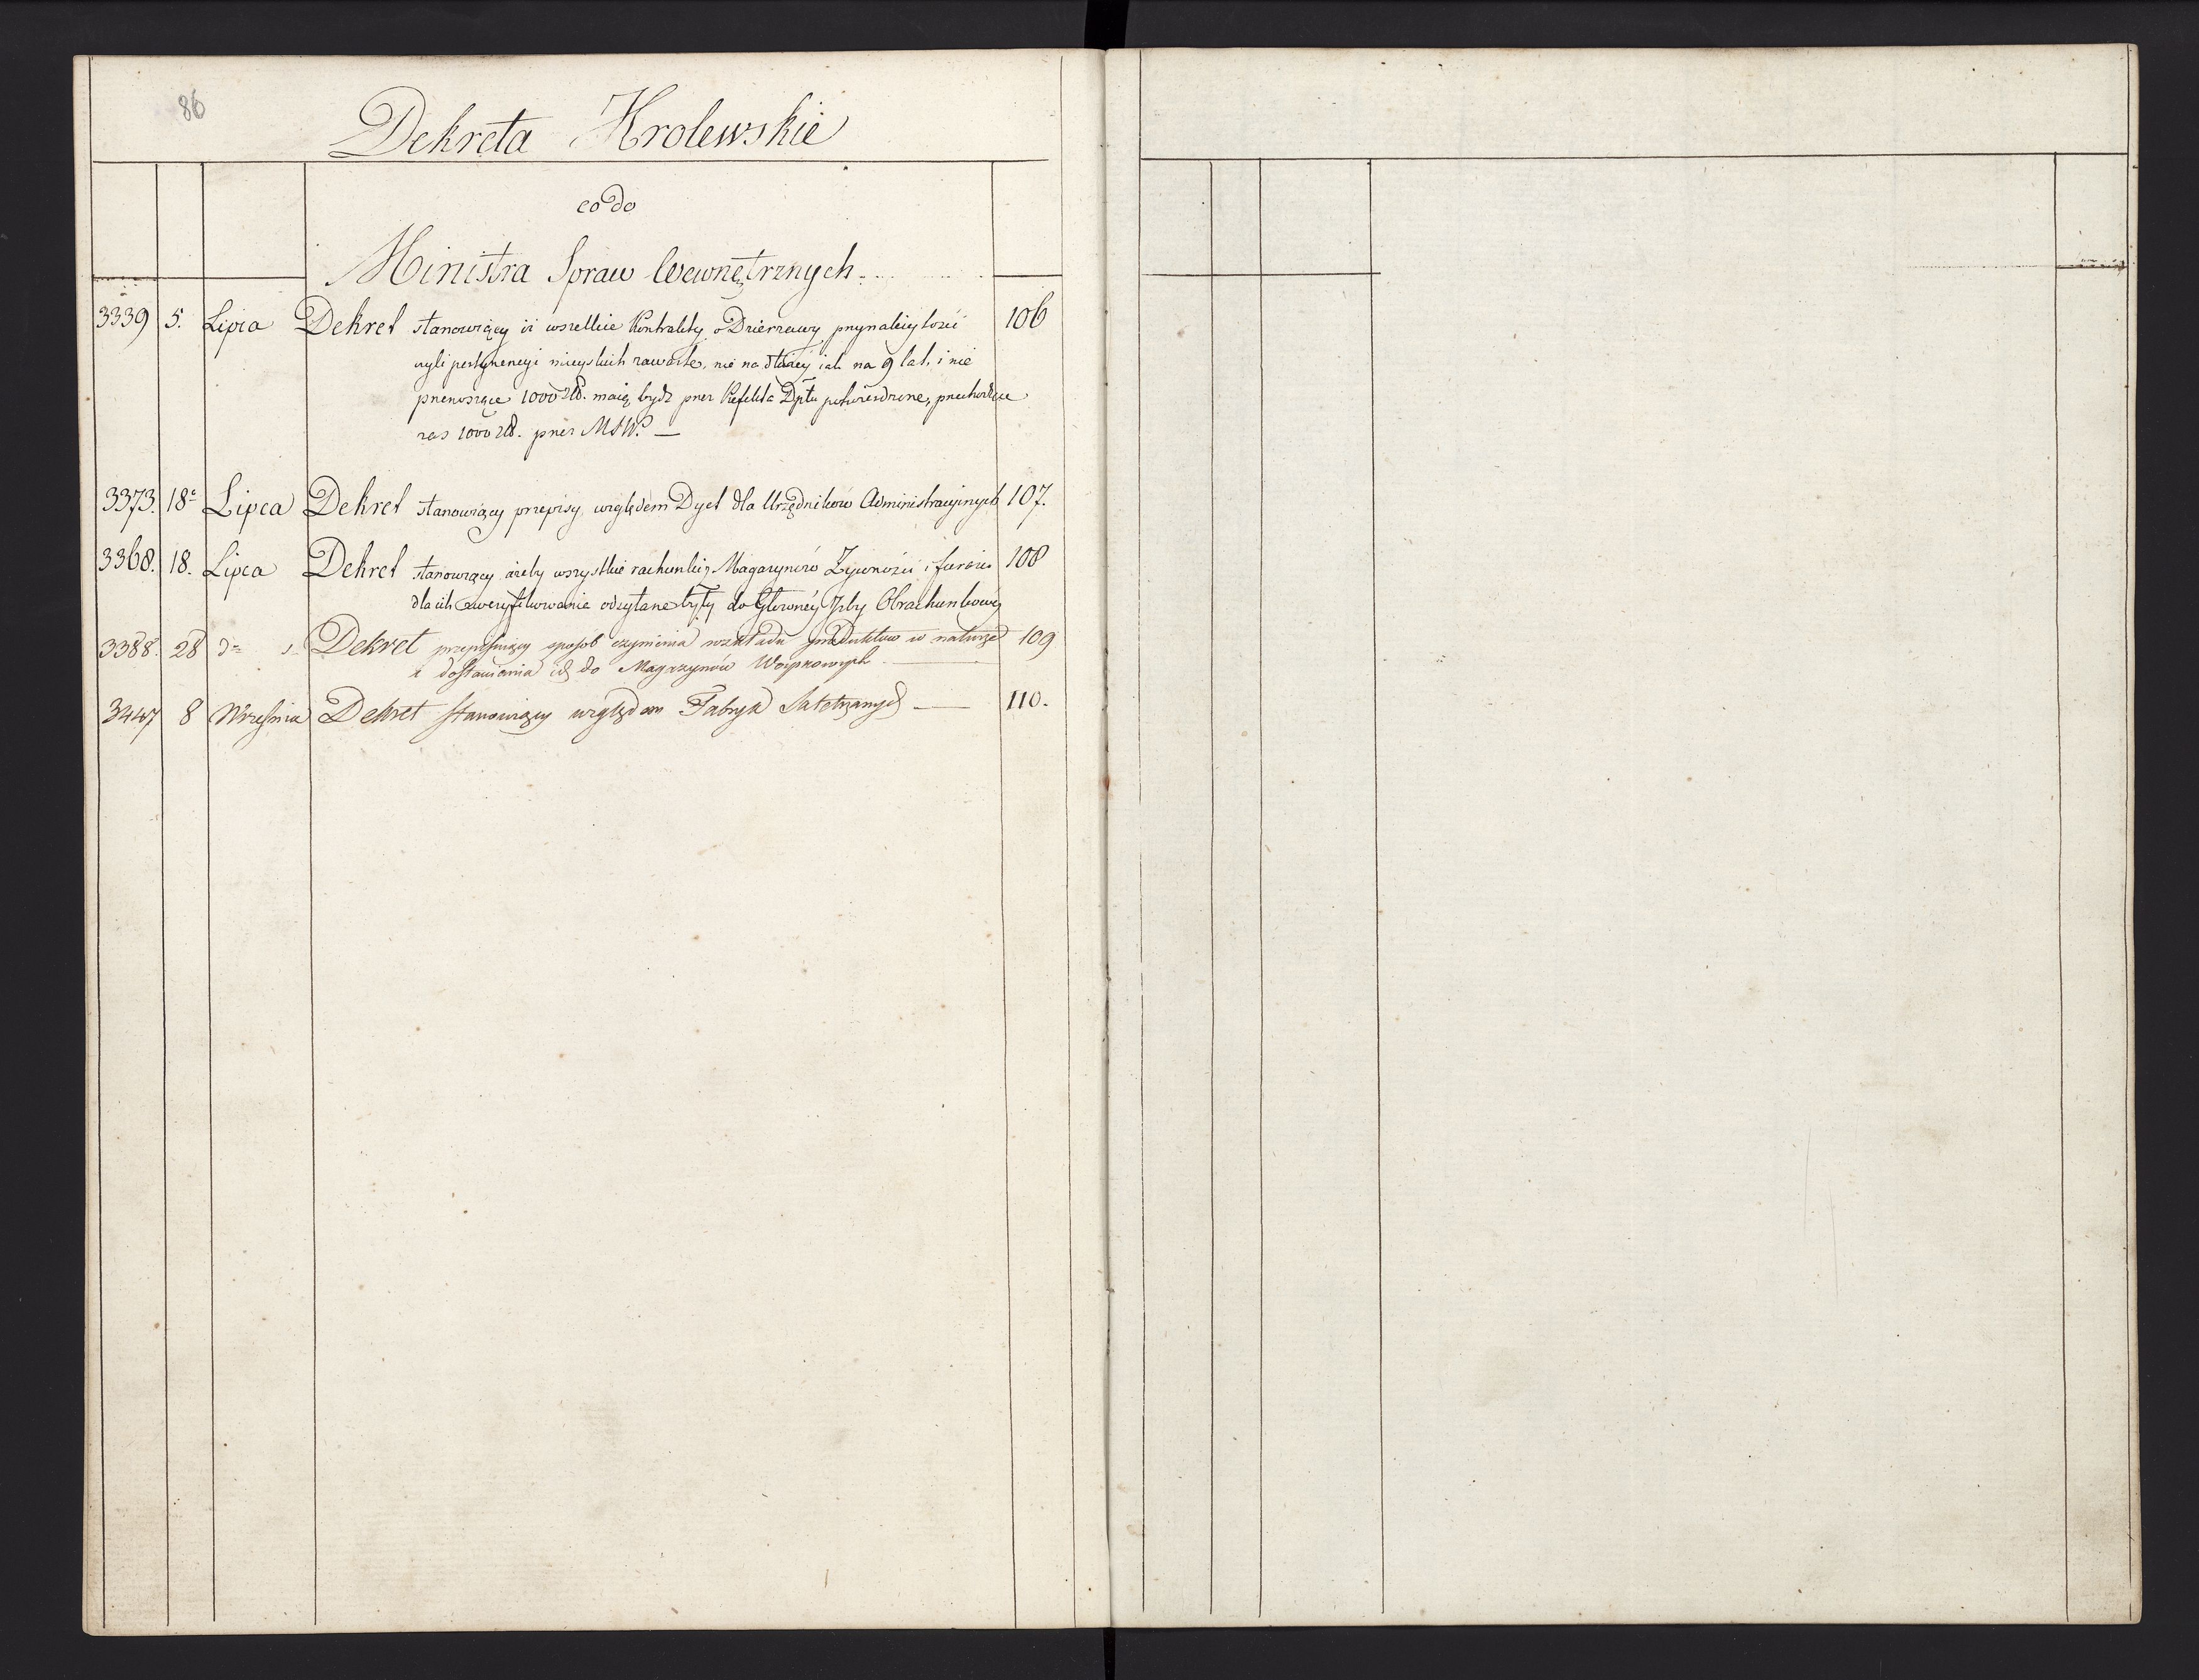 86
Dekreta Krolewskie
co do
Ministra Spraw Wewnętrznych.
3339 5. Lipca Dekret stanowiący iż wszelkie Kontrakty o Dzierzawy przynależytości 106
czyli pertynencyi mieyskich zawarte, nie na dłużéy iak na 9 lat, i nie
przenoszące 1000 zł. maią bydź przez Prefekta Dptu potwierdzone, przechodzące
zas 1000 zł. przez MSW. —
3373. 18. Lipca Dekret stanowiący przepisy względem Dyet dla Urzędników Administracyinych 107.
3368. 18. Lipca Dekret stanowiący ażeby wszystkie rachunki z Magazynów Żywności i furażu 108
dla ich zweryfikowania odsyłane były do Głownéy Izby Obrachunkowéy
3388. 28 d° Dekret przepisuiący sposób czynienia rozkładu produktów w naturze 109
i dostawiania ich do Magazynów Woyskowych —
3447 8 Września Dekret stanowiący względem Fabryk Saletrzanych — 110.